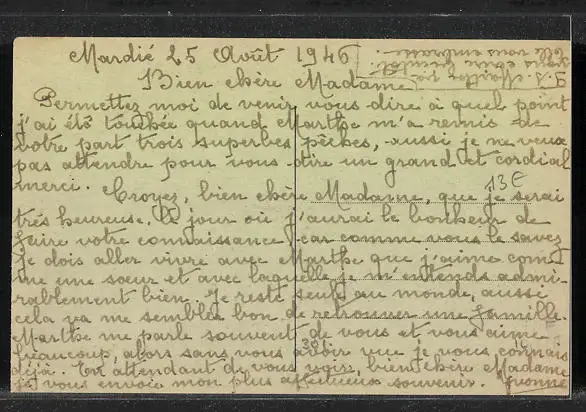 Mardié 25 Août 1946
Bien chère Madame
Permettez moi de venir vous dire à quel point
j'ai été touchée quand Marthe m'a remis de
votre part trois superbes pêches, aussi je ne veux
pas attendre pour vous dire un grand et cordial
merci. Croyez, bien chère Madame, que je serai
très heureuse, le jour où j'aurai le bonheur de
faire votre connaissance car comme vous le savez
je dois aller vivre avec Marthe que j'aime com
me une soeur et avec laquelle je m'entends admi-
rablement bien. Je reste seule au monde, aussi
cela va me sembler bon de retrouver une famille.
Marthe me parle souvent de vous et vous aime
beaucoup, alors sans vous avoir vue je vous connais
déjà. En attendant de vous voir, bien chère Madame
je vous envoie mon plus affectueux souvenir. Yvonne
P.S. Marthe va
vous écrire bientôt
elle vous embrasse
13€
30